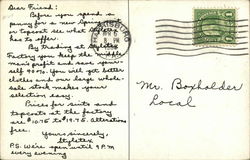 Dear Friend:
Before you spend a
paying for a new Spring
or topcoat see what Styletex
has to offer.
By trading at Styletex
Factory you keep the middle-
men's profit and save your-
self 40%. You will get better
clothes and our large whole-
sale stock makes your
selection easy.
Prices for suits and
topcoats at the factory
are $10.75 to $19.75. Alterations
free.
Yours sincerely,
Styletex
P.S. We're open until 9 P.M
every evening
Mr. Boxholder
Local